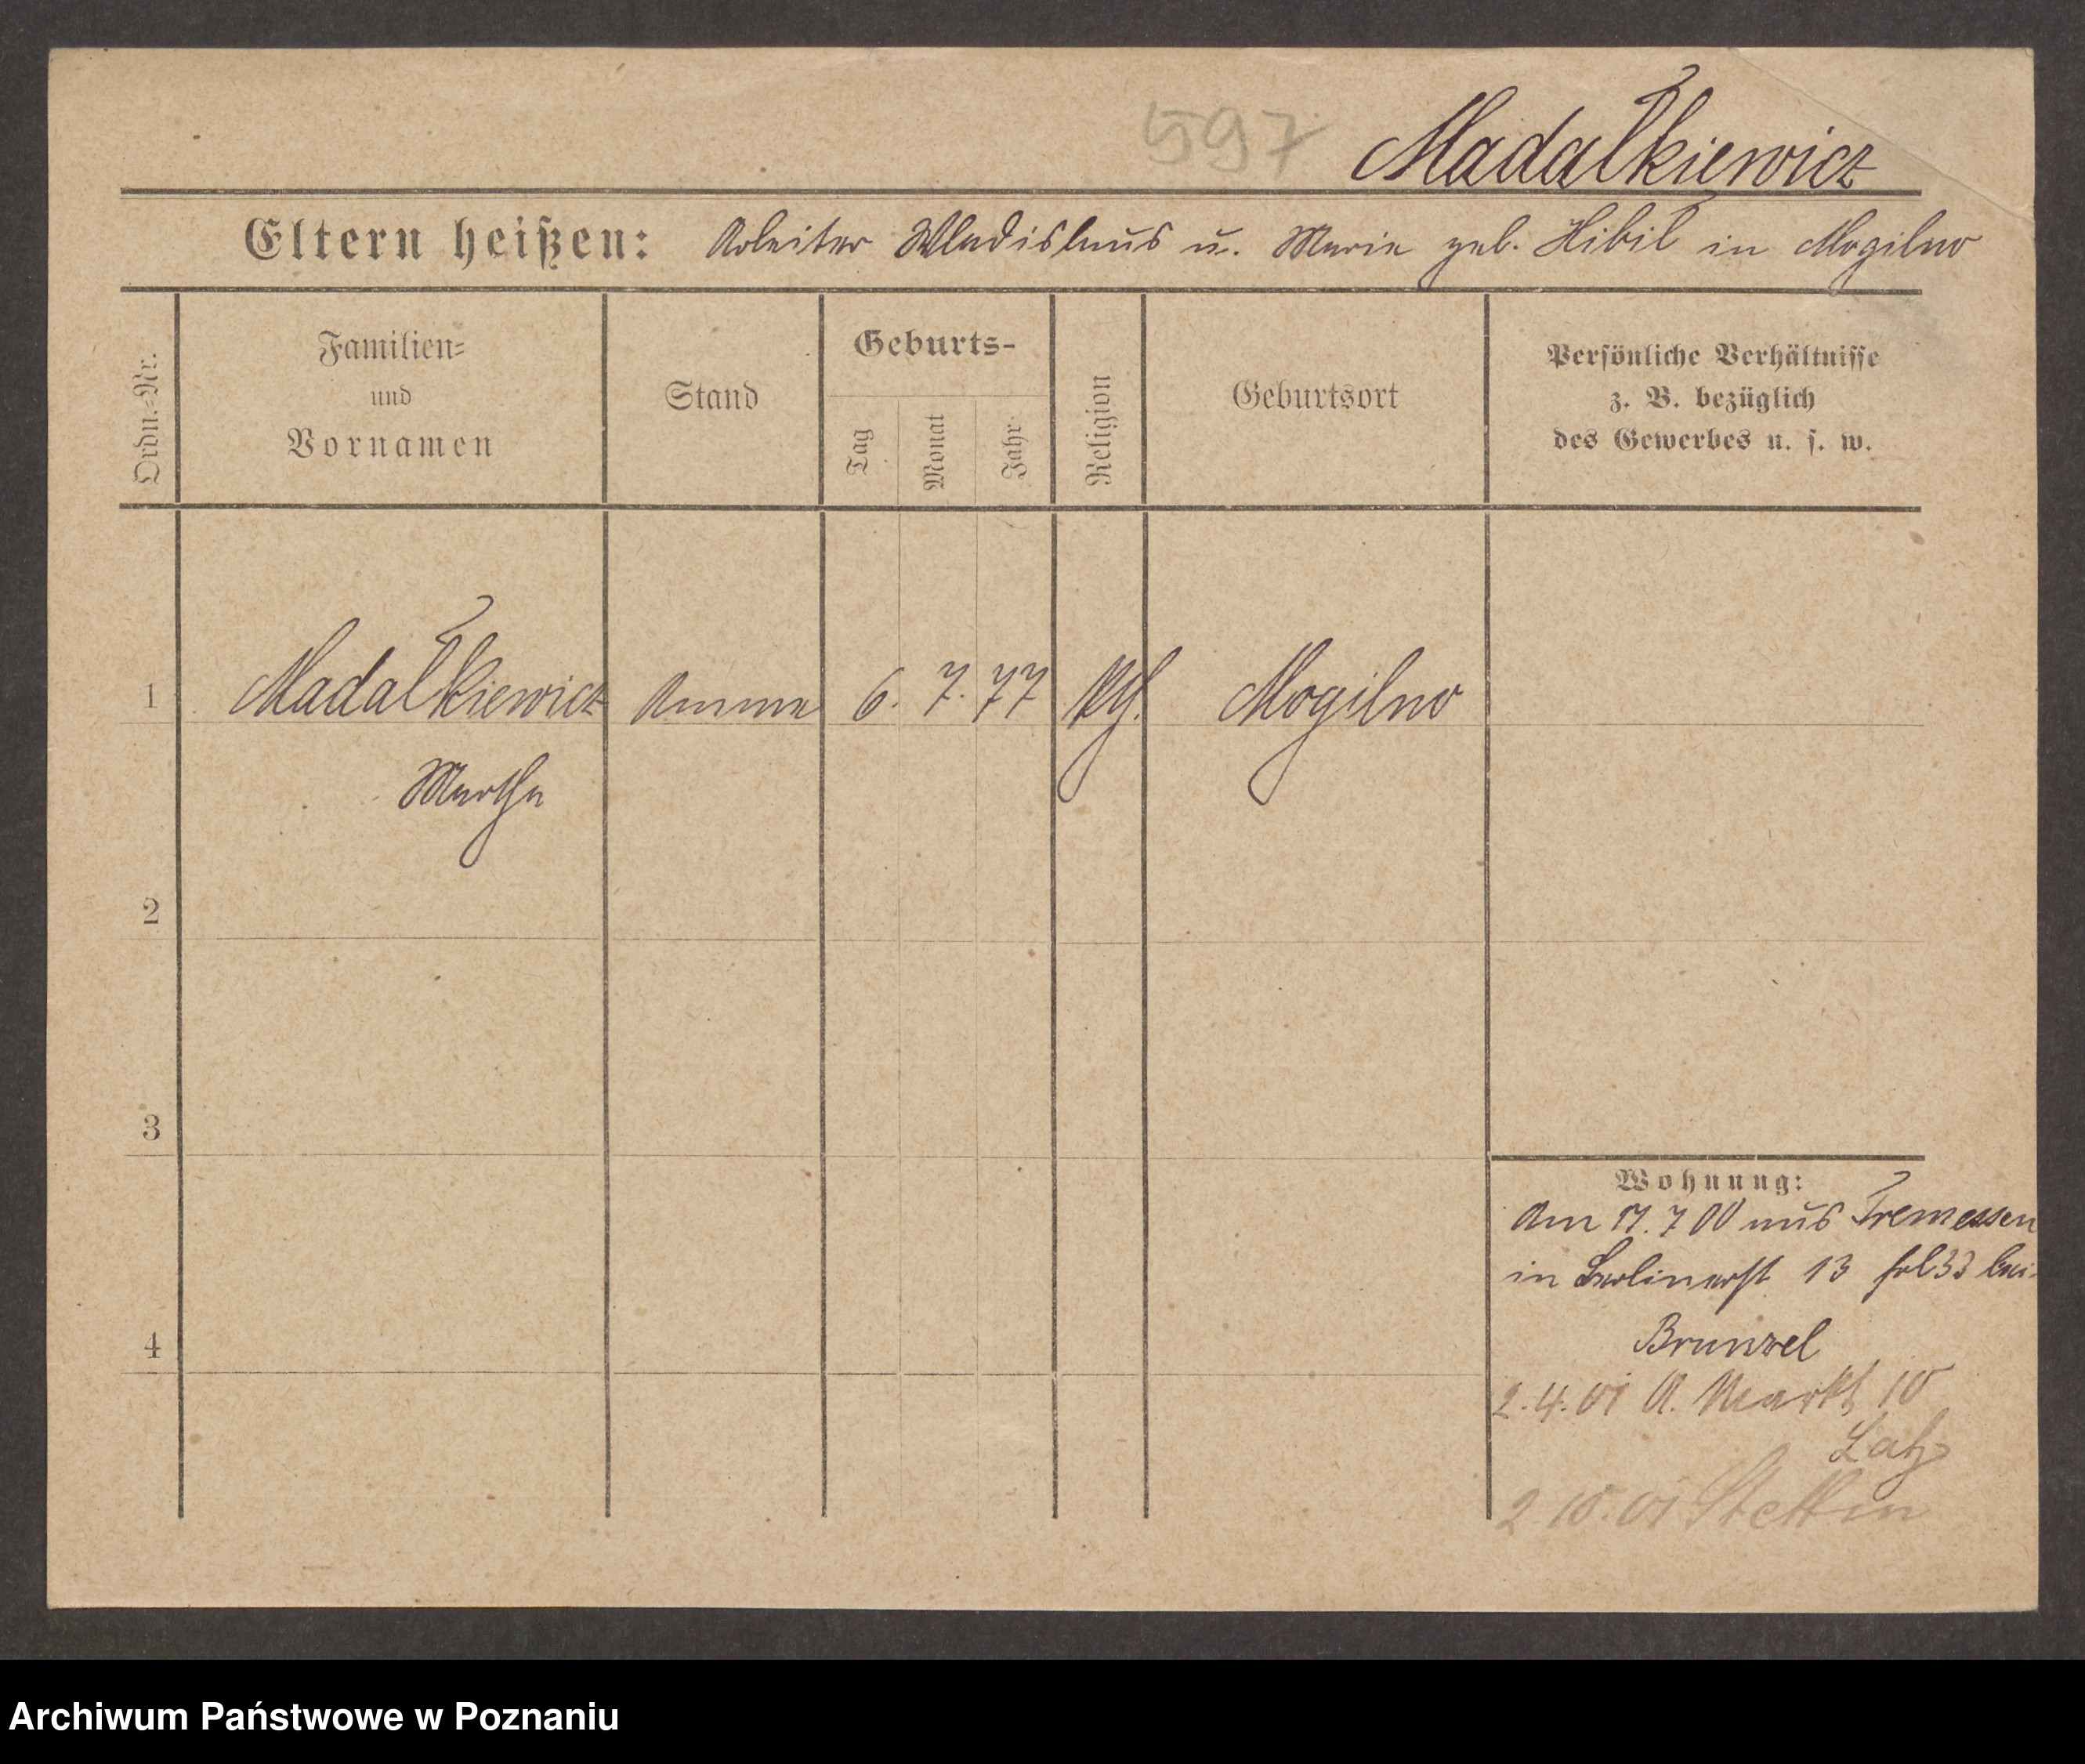 597 Madałkiewicz
Eltern heißen: Arbeiter Wladislaus u. Marie geb. Hibil in Mogilno
Ordn.=Nr.
Familien=
und
Vornamen
Stand
Geburts-
Tag
Monat
Jahr
Religion
Geburtsort
Persönliche Verhältnisse
z. B. bezüglich
des Gewerbes u. s. w.
1 Madałkiewicz Amme 6. 7. 77 Mogilno
Martha
2
3
4
Wohnung:
Am 17. 7 00 aus Tremessen
in Berlinerst. 13 bei
2. 4. 01 A. Markt 10
2 10. 01 Stettin
Archiwum Państwowe w Poznaniu